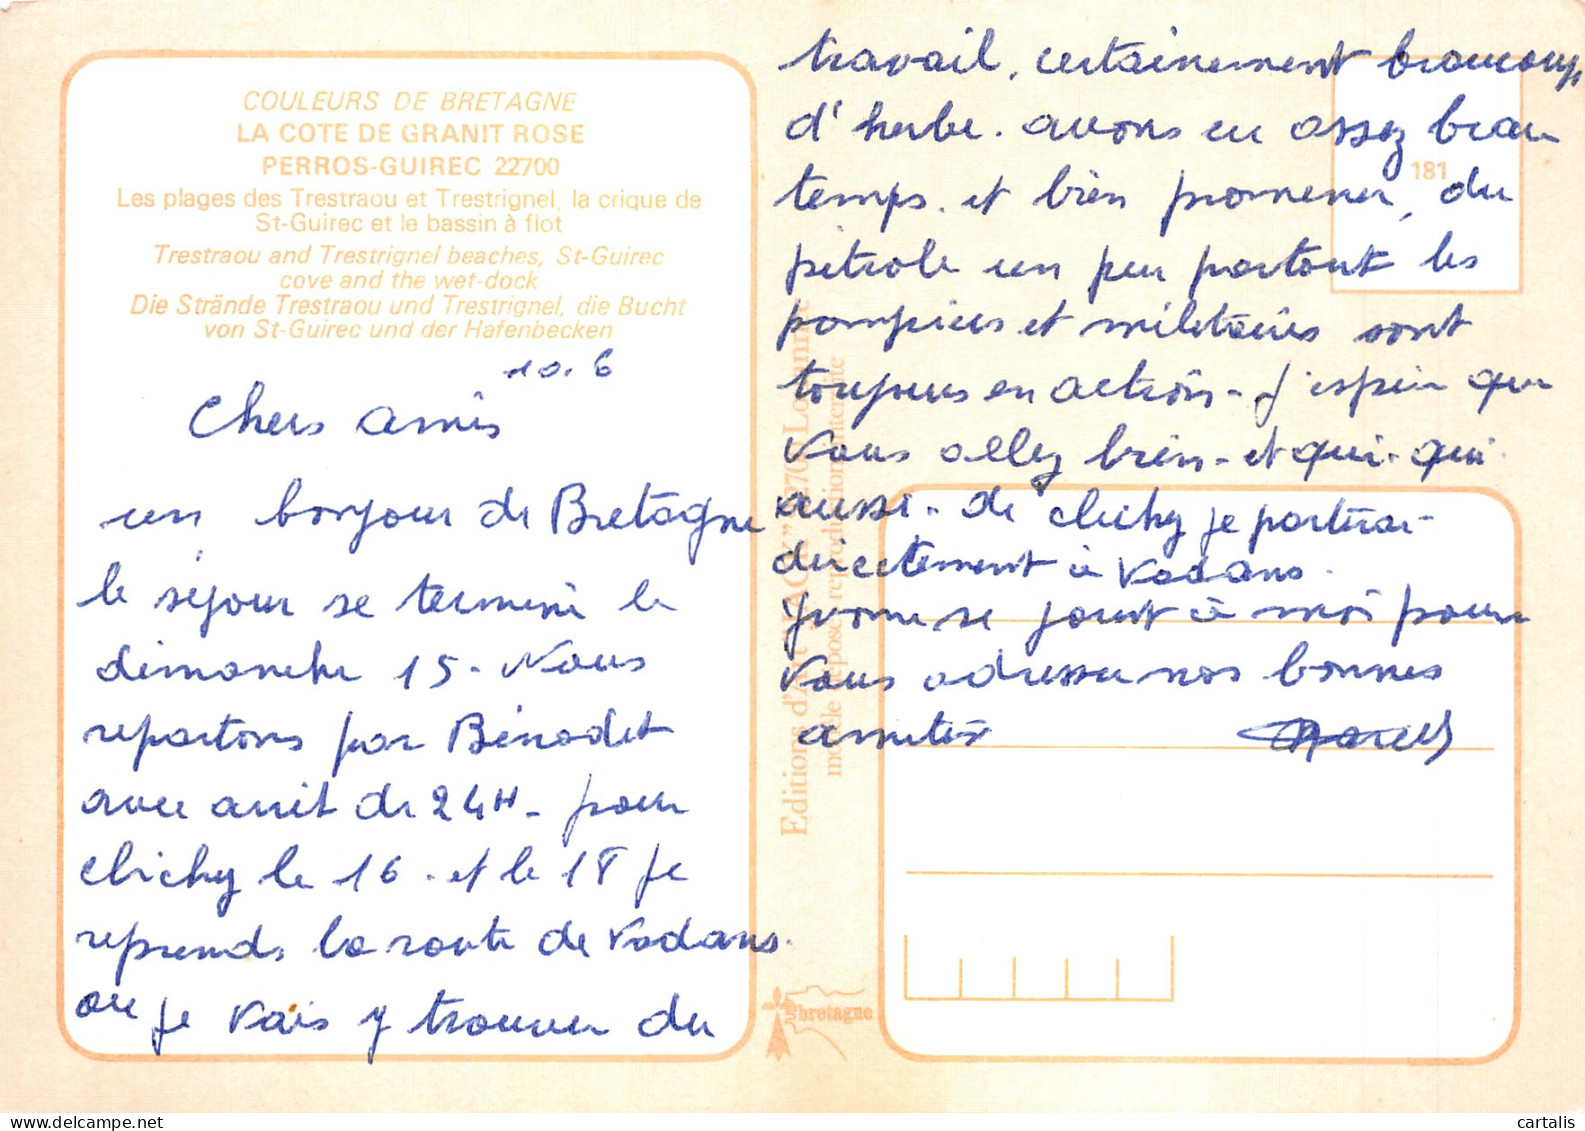 COULEURS DE BRETAGNE
LA COTE DE GRANIT ROSE
PERROS-GUIREC 22700
Les plages des Trestraou et Trestrignel, la crique de
St-Guirec et le bassin à flot
Trestraou and Trestrignel beaches, St-Guirec
cove and the wet-dock
Die Strände Trestraou und Trestrignel, die Bucht
von St-Guirec und der Hafenbecken
10.6
Chers amis
un bonjour de Bretagne
le séjour se termine le
dimanche 15. Nous
repartons par Bénodet
avec arrêt de 24H - pour
clichy le 16 - et le 18 je
reprends la route de Vadans.
ou je vais y trouver du
travail, certainement beaucoup
d'herbe. avons eu assez beau
temps. et bien promener, du
pétrole un peu partout les
pompiers et militaires sont
toujours en action - J'espère que
vous allez bien - et qui-qui
aussi - de clichy je partirai
directement à Vadans.
Yvonne se joint à moi pour
vous adresser nos bonnes
amitiés Marcel
181
Editions d'Art "JACK" 270 Louannec
modèle déposé reproduction interdite
bretagne
cartalis